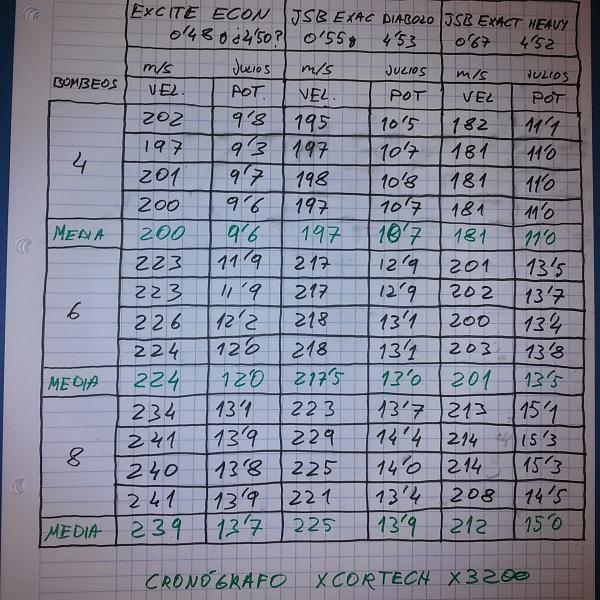 EXCITE ECON JSB EXAC DIABOLO JSB EXACT HEAVY
0'48 g ¿4'50? 0'55g 4'53 0'67 4'52
m/s JULIOS m/s JULIOS m/s JULIOS
BOMBEOS VEL. POT. VEL. POT VEL POT
202 9'8 195 10'5 182 11'1
4 197 9'3 197 10'7 181 11'0
201 9'7 198 10'8 181 11'0
200 9'6 197 10'7 181 11'0
MEDIA 200 9'6 197 10'7 181 11'0
223 11'9 217 12'9 201 13'5
223 11'9 217 12'9 202 13'7
6 226 12'2 218 13'1 200 13'4
224 12'0 218 13'1 203 13'8
MEDIA 224 12'0 217'5 13'0 201 13'5
234 13'1 223 13'7 213 15'1
241 13'9 229 14'4 214 15'3
8 240 13'8 225 14'0 214 15'3
241 13'9 221 13'4 208 14'5
MEDIA 239 13'7 225 13'9 212 15'0
CRONÓGRAFO XCORTECH X3200